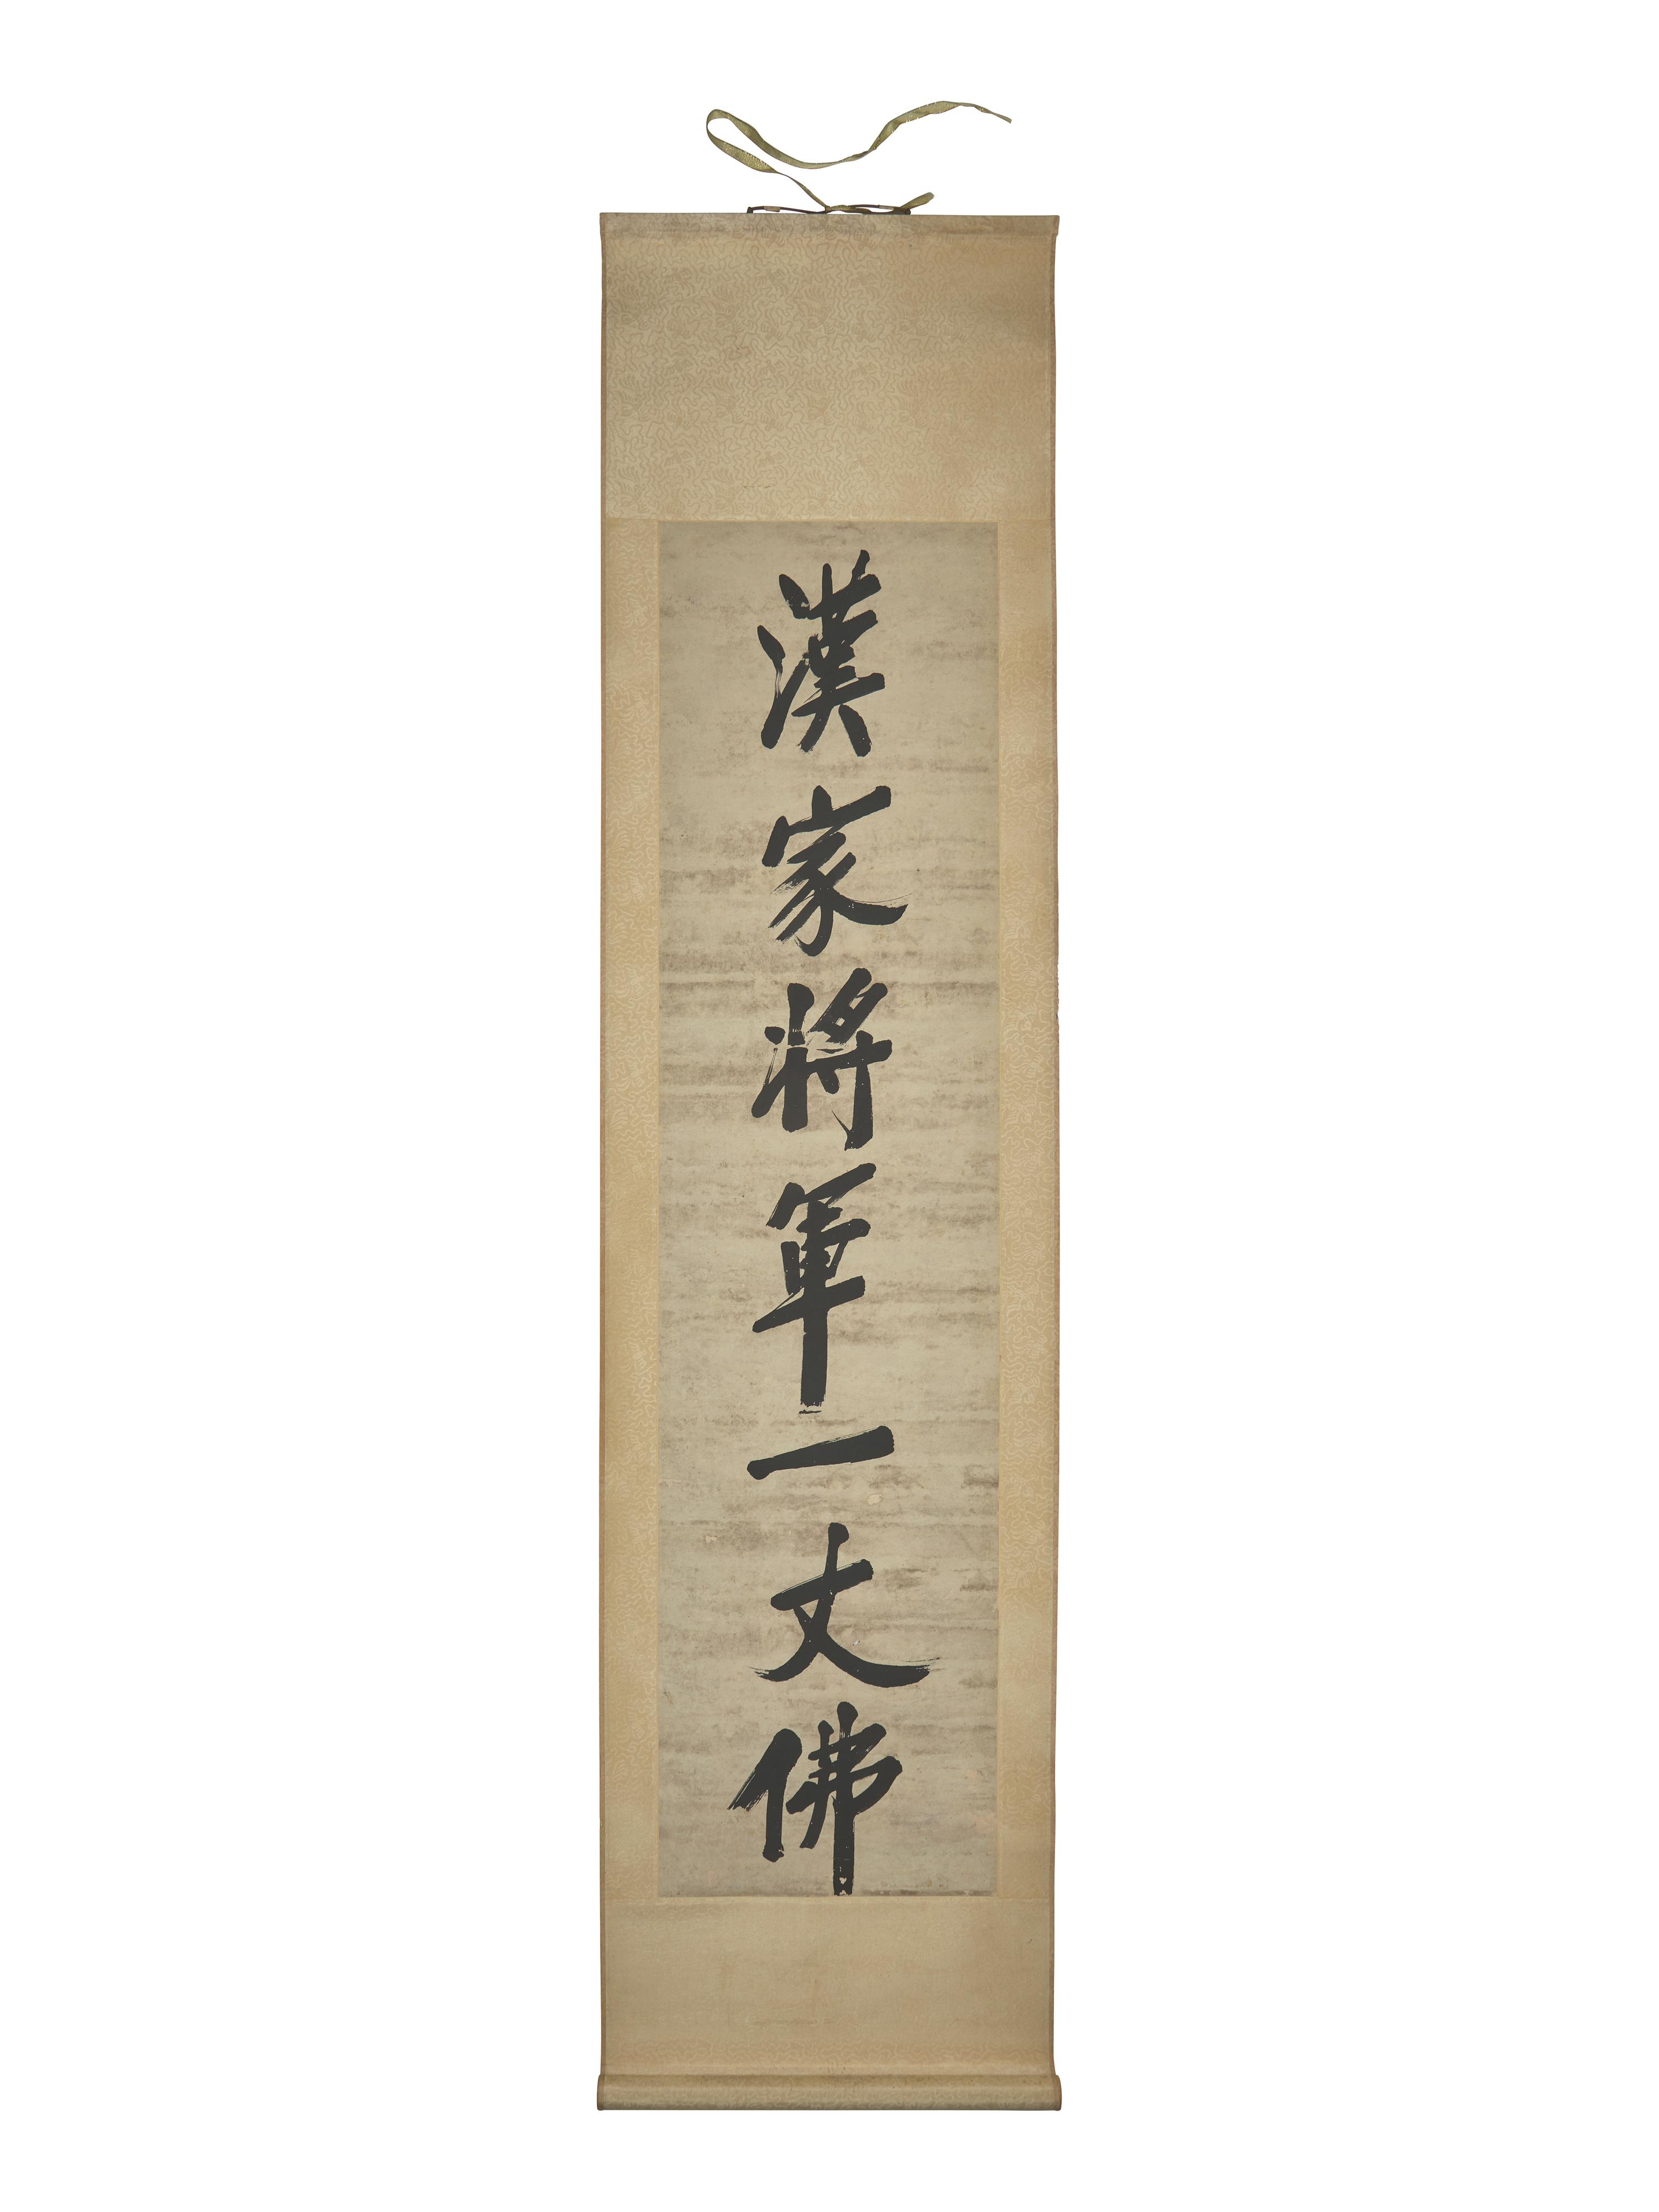 漢家將軍一丈佛